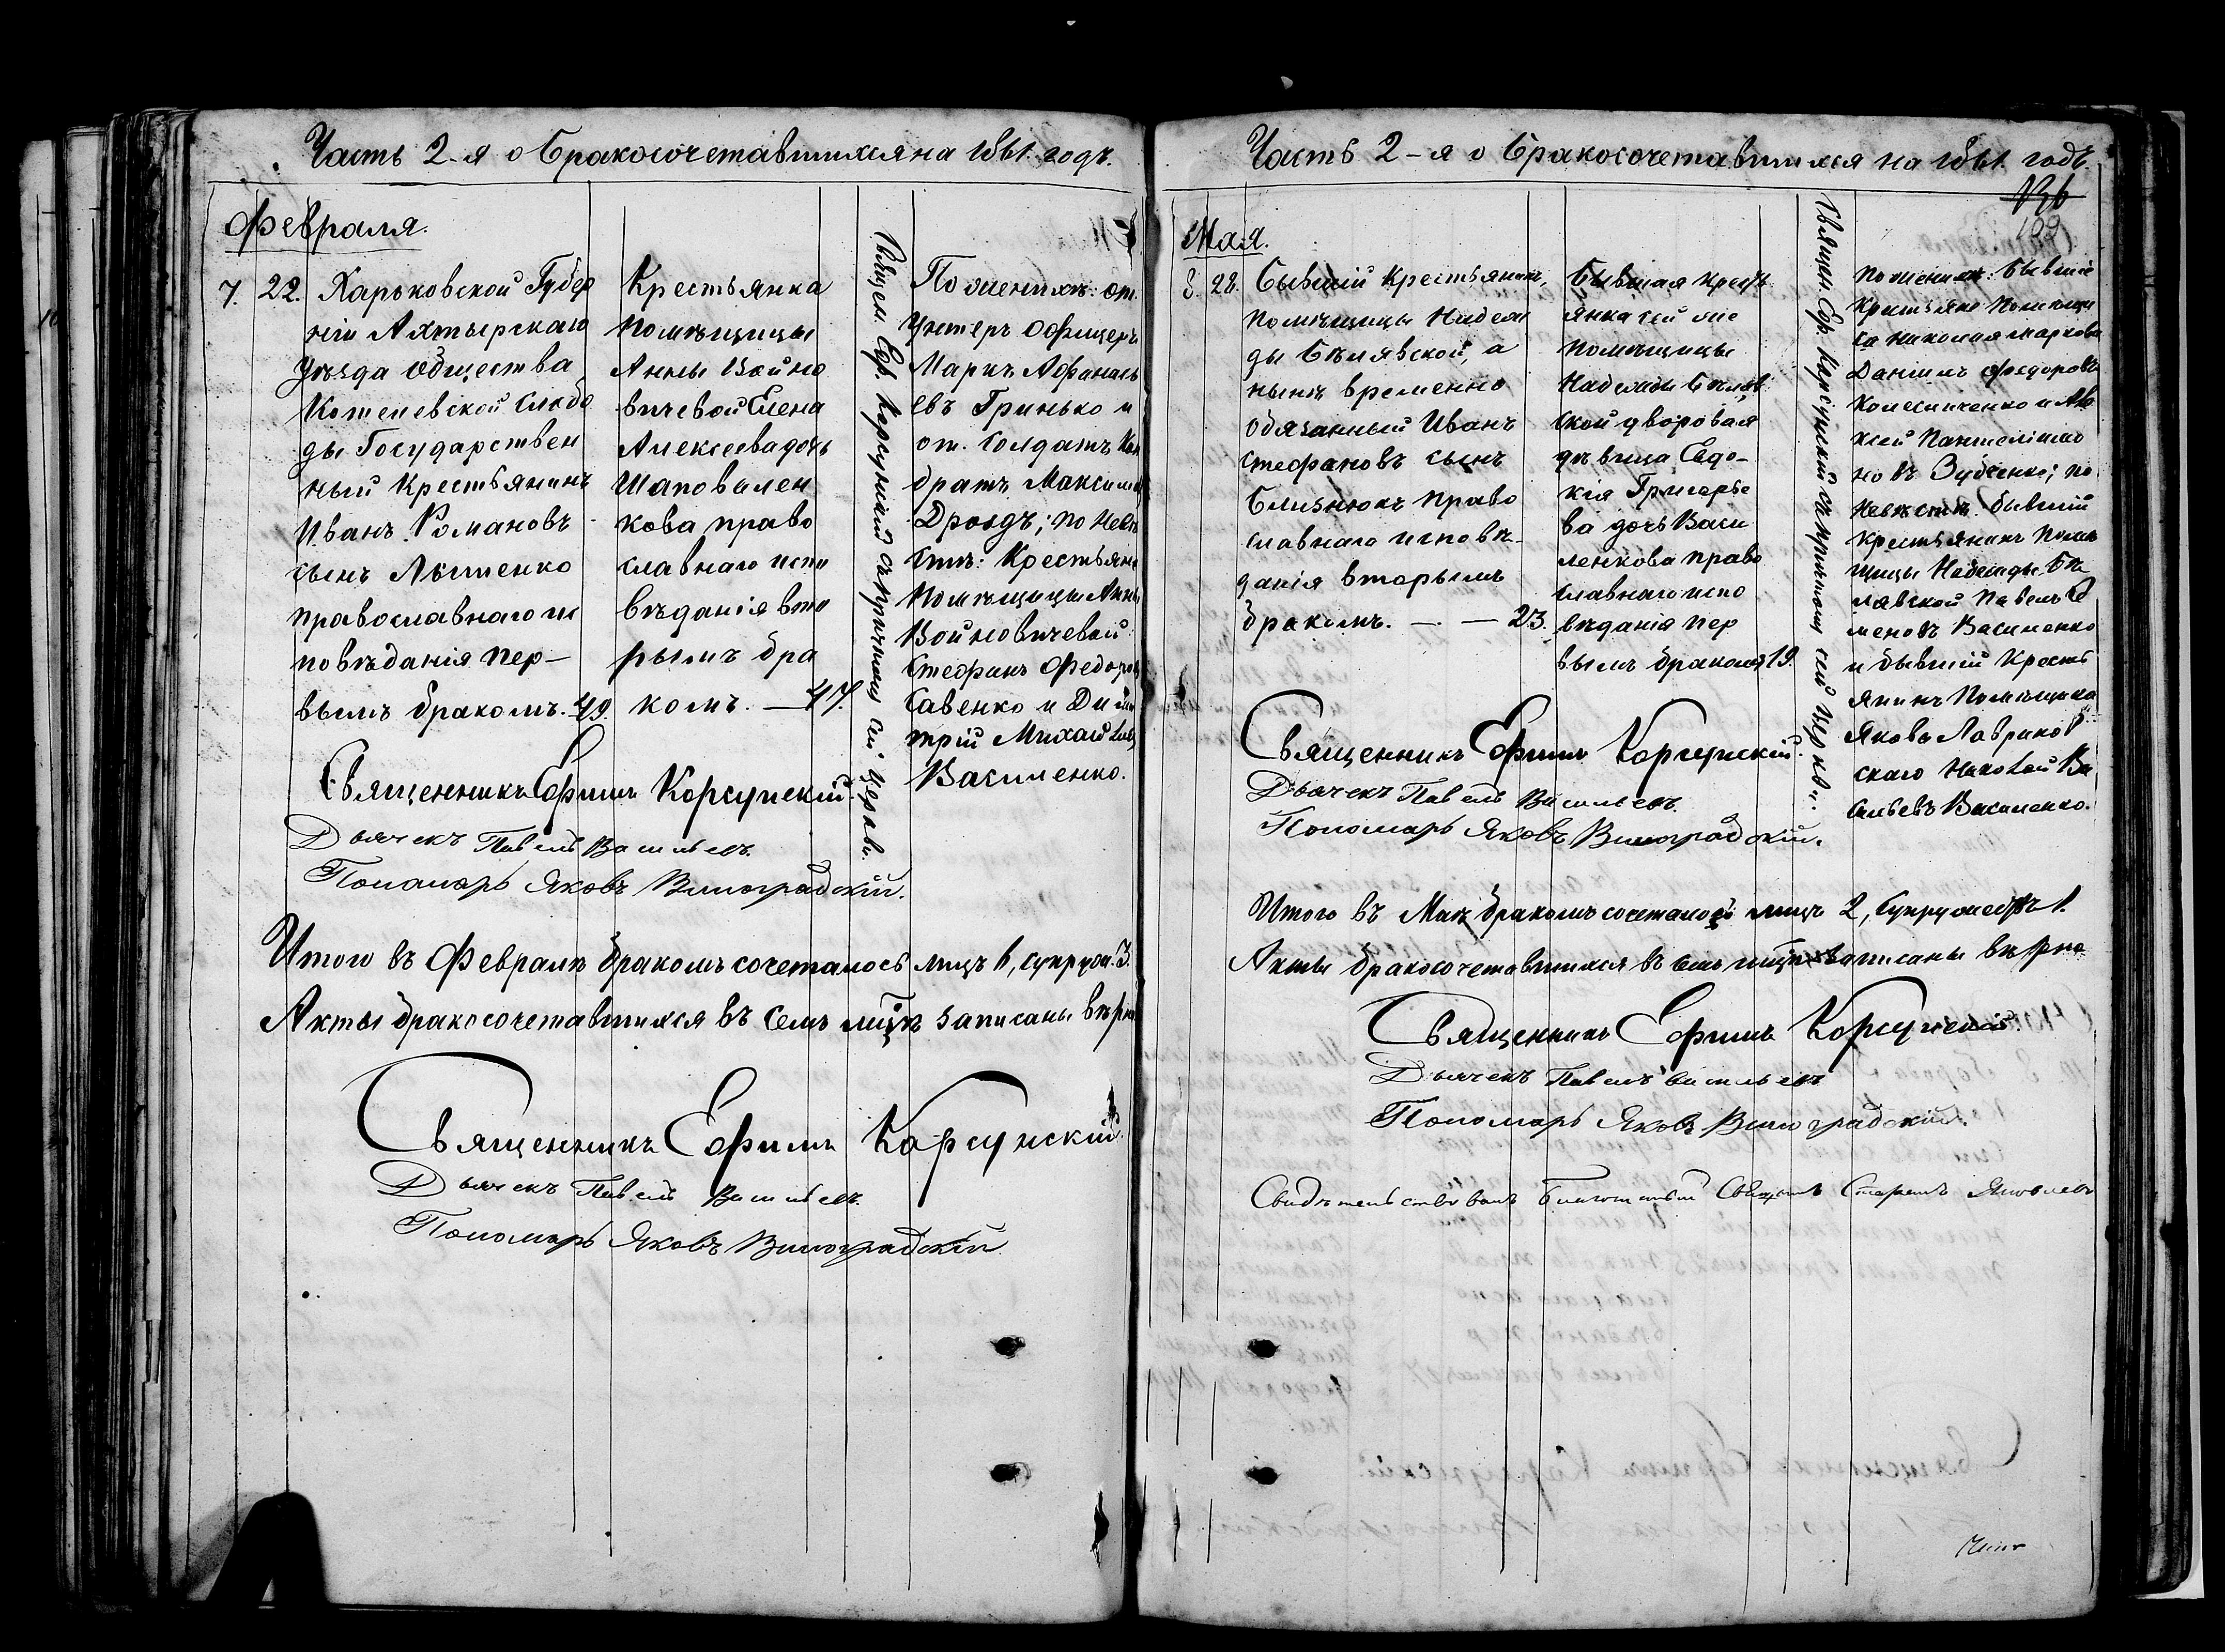 Часть 2-я о бракосочетавшихся на 1861 годъ.
Февраля.
7. 22.
Харьковской Губер
ніи Ахтырскаго
Уѣзда общества
Котелевской слобо
ды Государствен
ный Крестьянинъ
Иванъ Романовъ
сынъ Ляшенко
православнаго ис
повѣданія пер-
вымъ бракомъ. 49.
Крестьянка
помѣщицы
Анны Войно
вичевой Елена
Алексеева дочь
Шаповален
кова право
славнаго испо
вѣданія вто
рымъ бра
комъ. — 47.
Священ. Евф. Корсунскій съ причтомъ сей церкви.
По женихѣ: от.
Унтеръ Офицеръ
Маркъ Афанась
евъ Гринько и
от. Солдатъ Кон
дратъ Максимов
Дроздъ; по невѣ
стѣ: Крестьяне
помѣщицы Анны
Войновичевой
Стефанъ Федоров
Савенко и Дими
трій Михайлов
Василенко.
Священникъ Ефимъ Корсунскій.
Дьячекъ Павелъ Васильевъ.
Пономарь Яковъ Виноградскій.
Итого въ Февралѣ бракомъ сочеталось лицъ 6, супруж. 3.
Акты бракосочетавшихся въ семъ мѣсяцѣ записаны вѣрно
Священникъ Ефимъ Корсунскій.
Дьячекъ Павелъ Васильевъ.
Пономарь Яковъ Виноградскій.
Часть 2-я о бракосочетавшихся на 1861 годъ.
136
169
Мая.
8. 28.
Бывшій крестьянинъ,
помѣщицы Надеж
ды Белявской, а
нынѣ временно
обязанный Иванъ
Стефановъ сынъ
Близнюкъ право
славнаго исповѣ-
данія вторымъ
бракомъ. — — 23.
Бывшая крест
янка сей же
помѣщицы
Надежды Беляв
ской дворовая
дѣвица Евдо-
кія Григорье
ва дочь Васи
ленкова право
славнаго испо
вѣданія пер
вымъ бракомъ 19.
Священ. Ефр. Корсунскій съ причтомъ сей церкви.
По женихѣ: бывшіе
крестьяне помѣщи
ка Николая Маркова
Даніилъ Федоровъ
Колесниченко и Але
ксей Пантелеимо
новъ Зубченко; по
невѣстѣ: бывшій
крестьянинъ помѣ
щицы Надежды Бе
лявской Павелъ Се
меновъ Василенко
и бывшій Кресть
янинъ помѣщика
Якова Лавриков
скаго Николай Ва
сильевъ Василенко.
Священникъ Ефимъ Корсунскій.
Дьячекъ Павелъ Васильевъ.
Пономарь Яковъ Виноградскій.
Итого въ Маѣ бракомъ сочеталось лицъ 2, супружествъ 1.
Акты бракосочетавшихся въ семъ мѣсяцѣ записаны вѣрно
Священникъ Ефимъ Корсунскій.
Дьячекъ Павелъ Васильевъ
Пономарь Яковъ Виноградскій.
Свидѣтельствовалъ Благочинный Священ Стефанъ Яковлевъ